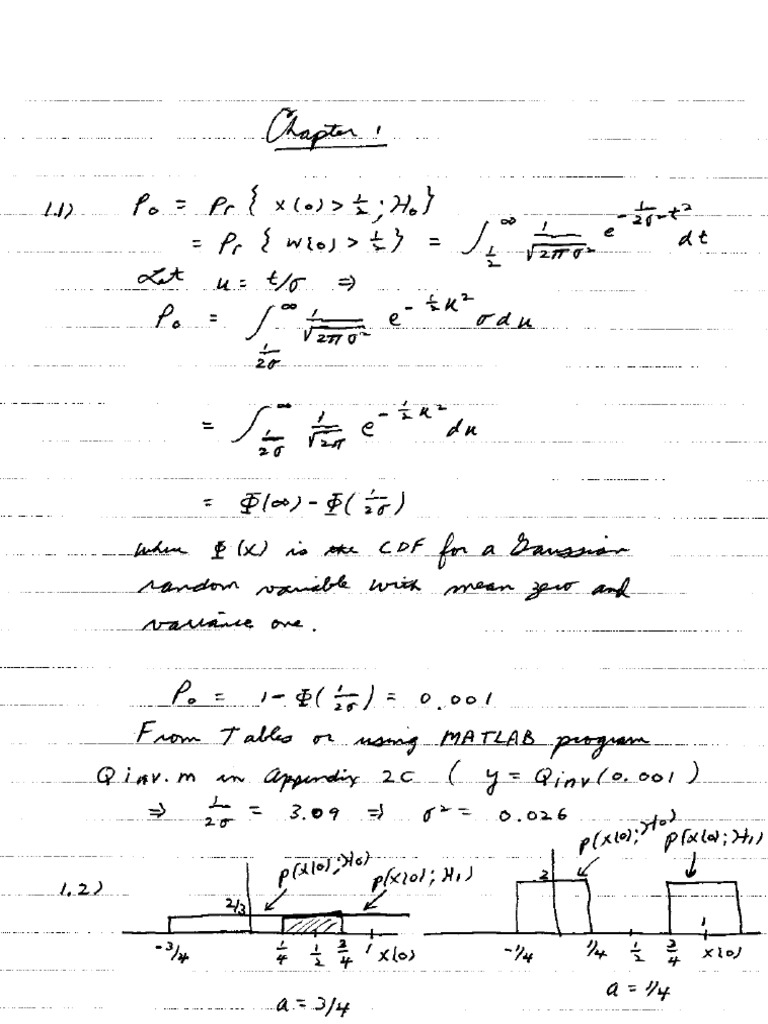 Chapter 1
1.1) P₀ = Pr{ x(0) > 1/2 ; H₀}
= Pr{ w(0) > 1/2 } = ∫_{1/2}^{∞} 1/√(2πσ²) e^{-1/(2σ²) t²} dt
Let u = t/σ ⇒
P₀ = ∫_{1/2σ}^{∞} 1/√(2πσ²) e^{-1/2 u²} σ du
= ∫_{1/2σ}^{∞} 1/√(2π) e^{-1/2 u²} du
= Φ(∞) - Φ(1/2σ)
where Φ(x) is the CDF for a Gaussian
random variable with mean zero and
variance one.
P₀ = 1 - Φ(1/2σ) = 0.001
From Tables or using MATLAB program
Qinv.m in Appendix 2C ( y = Qinv(0.001)
⇒ 1/2σ = 3.09 ⇒ σ² = 0.026
1.2)
p(x(0); H₀) p(x(0); H₁) p(x(0); H₀) p(x(0); H₁)
2/3 2
-3/4 1/4 1/2 3/4 1 x(0) -1/4 1/4 1/2 3/4 1 x(0)
a = 3/4 a = 1/4